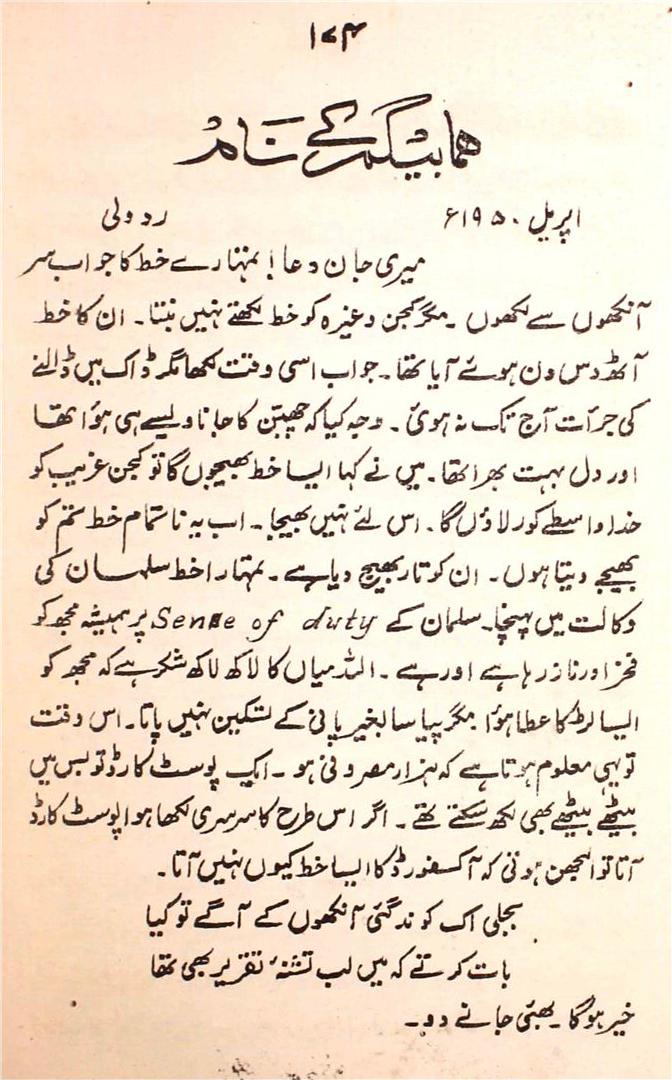 ۱۷۴
ہما بیگم کے نام
اپریل ۱۹۵۰ء ردولی
میری جان دعا! تمہارے خط کا جواب سر
آنکھوں سے لکھوں ۔ مگر کجن وغیرہ کو خط لکھتے نہیں بنتا۔ ان کا خط
آٹھ دس دن ہوئے آیا تھا۔ جواب اسی وقت لکھا مگر ڈاک میں ڈالنے
کی جرأت آج تک نہ ہوئی ۔ وجہ کیا کہ چھبّن کا جانا ویسے ہی ہوا تھا
اور دل بہت بھرا تھا۔ میں نے کہا ایسا خط بھیجوں گا تو کجن غریب کو
خدا واسطے کو رلاؤں گا۔ اس لئے نہیں بھیجا۔ اب یہ ناتمام خط تم کو
بھیجے دیتا ہوں۔ ان کو تار بھیج دیا ہے۔ تمہارا خط سلمان کی
وکالت میں پہنچا۔ سلمان کے Sense of duty پر ہمیشہ مجھ کو
فخر اور ناز رہا ہے اور ہے ۔ اللہ میاں کا لاکھ لاکھ شکر ہے کہ مجھ کو
ایسا لڑکا عطا ہوا مگر پیاسا بغیر پانی کے تسکین نہیں پاتا۔ اس وقت
تو یہی معلوم ہوتا ہے کہ ہزار مصروفی ہو ۔ ایک پوسٹ کارڈ تو بس میں
بیٹھے بیٹھے بھی لکھ سکتے تھے ۔ اگر اس طرح کا سرسری لکھا ہوا پوسٹ کارڈ
آتا تو الجھن ہوتی کہ آکسفورڈ کا ایسا خط کیوں نہیں آتا۔
بجلی اک کوند گئی آنکھوں کے آگے تو کیا
بات کرتے کہ میں لب تشنۂ تقریر بھی تھا
خیر ہوگا ۔ بھئی جانے دو ۔